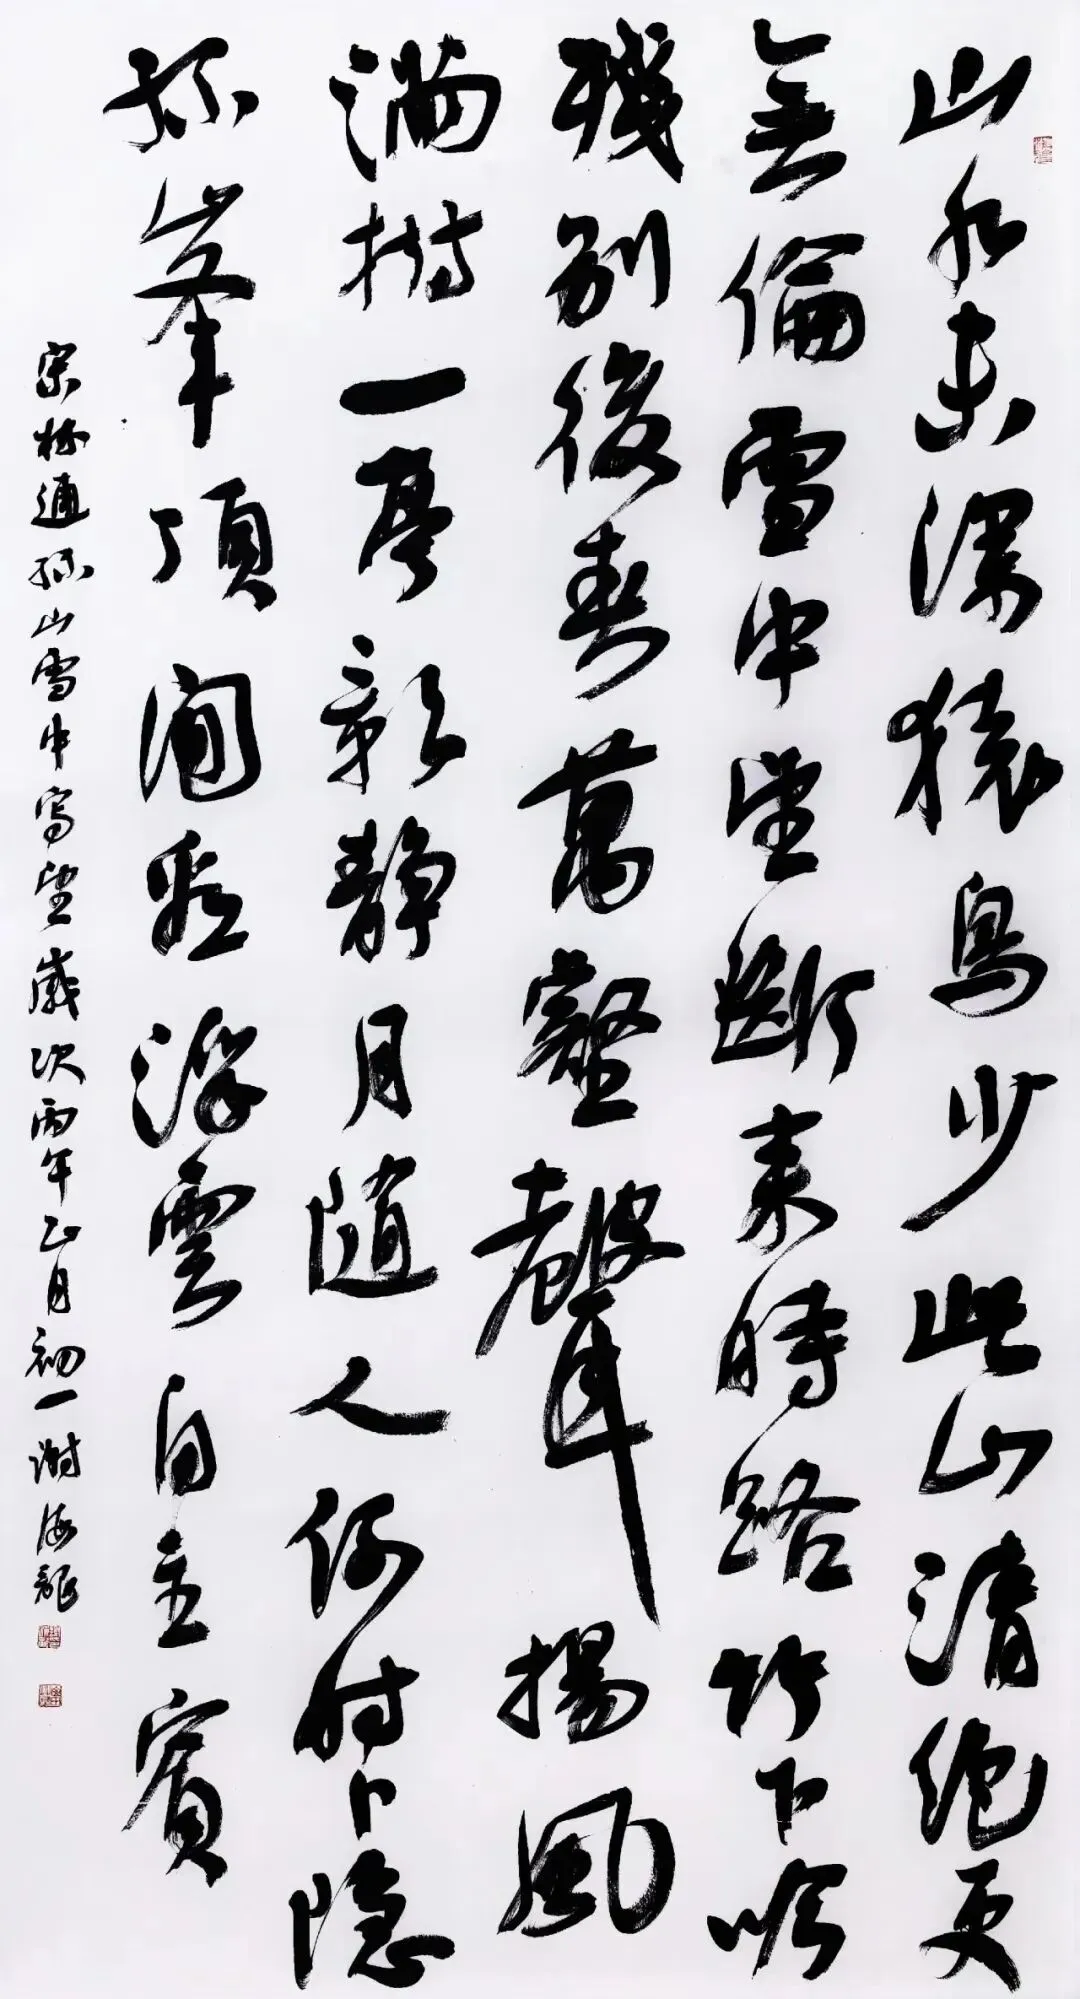 山水未深猿鳥少此山清絕更
無倫雪中望斷來時路竹下吟
殘別後春萬壑聲揚風
滿樹一亭影靜月隨人何时卜隐
孤峯頂閒看浮雲自主賓
宋林逋孤山雪中寫望歲次丙午正月初一謝海龍